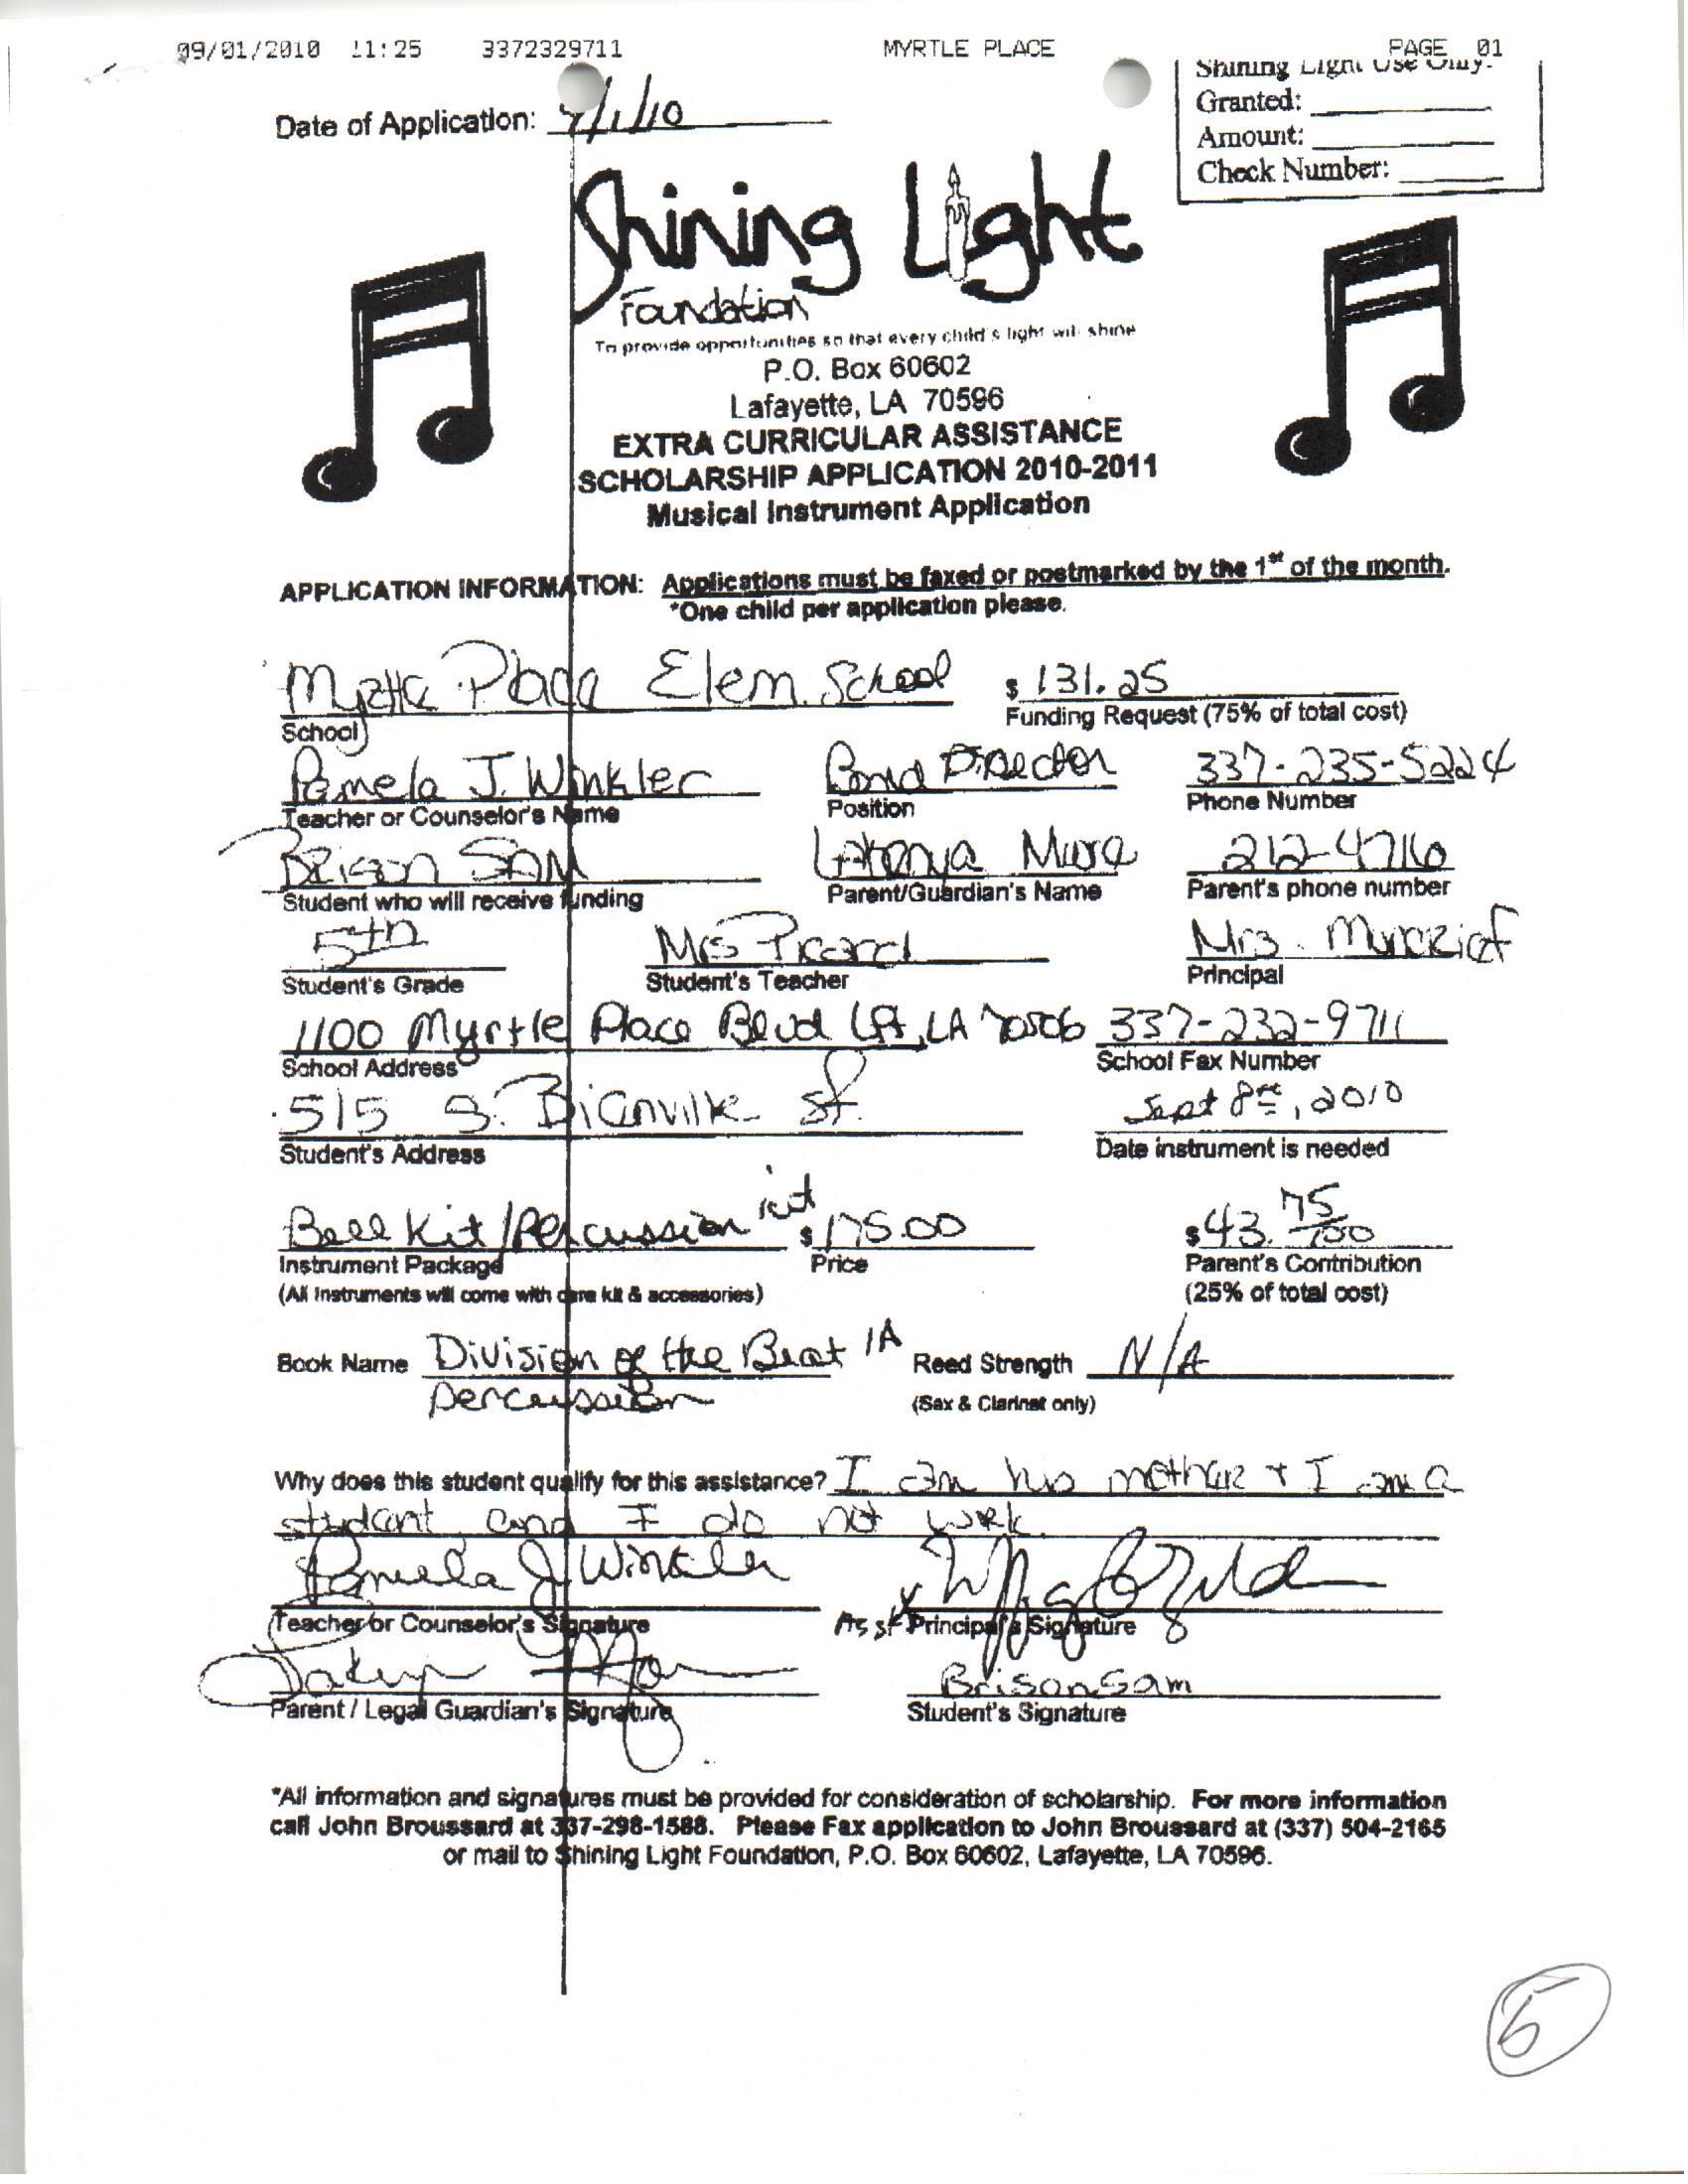 09/01/2010 11:25 3372329711 MYRTLE PLACE PAGE 01
Shining Light Use Only:
Granted:
Amount:
Check Number:
Date of Application: 9/1/10
Shining Light
Foundation
To provide opportunities so that every child's light will shine
P.O. Box 60602
Lafayette, LA 70596
EXTRA CURRICULAR ASSISTANCE
SCHOLARSHIP APPLICATION 2010-2011
Musical Instrument Application
APPLICATION INFORMATION: Applications must be faxed or postmarked by the 1st of the month.
*One child per application please.
Myrtle Place Elem. School $ 131.25
School Funding Request (75% of total cost)
Pamela J. Winkler Band Director 337-235-5224
Teacher or Counselor's Name Position Phone Number
Brison SAM Latonya 212-4716
Student who will receive funding Parent/Guardian's Name Parent's phone number
5th Mrs Picard Mrs.
Student's Grade Student's Teacher Principal
1100 Myrtle Place Blvd Lft, LA 70506 337-232-9711
School Address School Fax Number
515 S. Bienville St. Sept 8th, 2010
Student's Address Date instrument is needed
Bell Kit/Percussion kit $ 175.00 $ 43. 75/100
Instrument Package Price Parent's Contribution
(All instruments will come with care kit & accessories) (25% of total cost)
Book Name Division of the Beat 1A Reed Strength N/A
percussion (Sax & Clarinet only)
Why does this student qualify for this assistance? I am his mother + I am a
student and I do not work.
Pamela J. Winkler
Teacher or Counselor's Signature Asst Principal's Signature
Brison Sam
Parent / Legal Guardian's Signature Student's Signature
*All information and signatures must be provided for consideration of scholarship. For more information
call John Broussard at 337-298-1588. Please Fax application to John Broussard at (337) 504-2165
or mail to Shining Light Foundation, P.O. Box 60602, Lafayette, LA 70596.
5